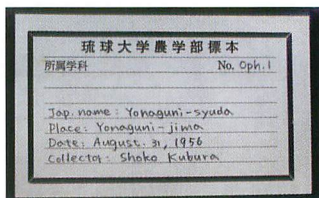 琉球大学農学部標本
所属学科 No. Oph.1
Jap. name: Yonaguni-syuda
Place: Yonaguni-jima
Date: August. 31, 1956
Collector: Shoko Kubura